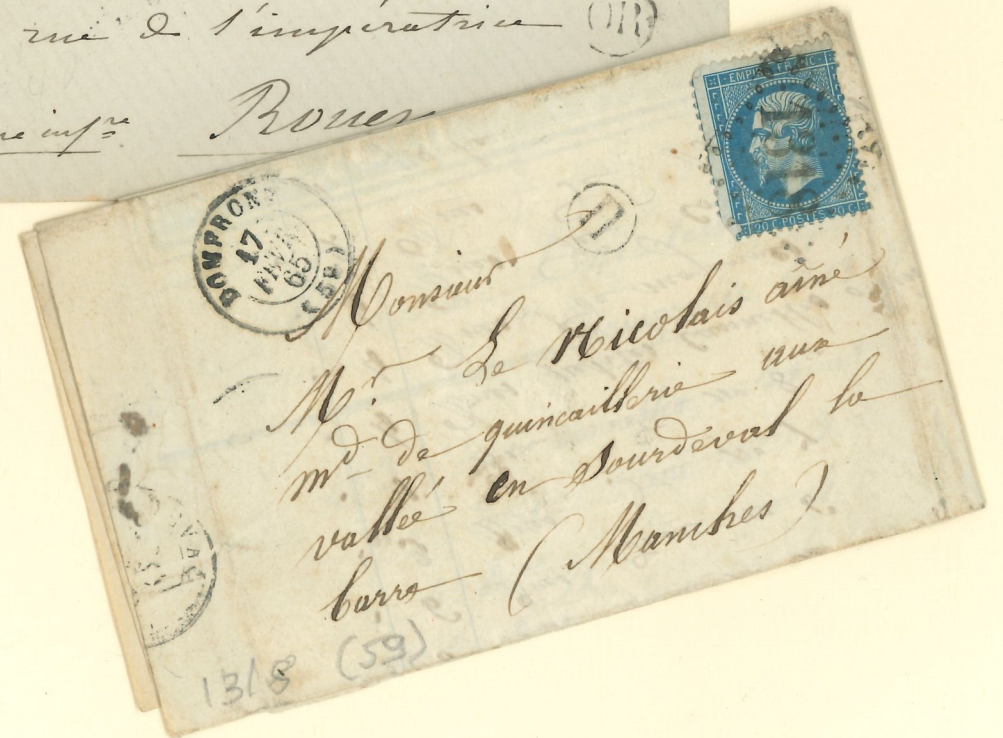 rue de l'impératrice
OR
infre Rouen
EMPIRE FRANC
1318
20 C POSTES 20 C
DOMFRONT
17
FEVR
65
(59)
D
Monsieur
Mr Le Nicolais ainé
md de quincaillerie aux
vallée en Sourdeval la
barre (Manches)
1318 (59)